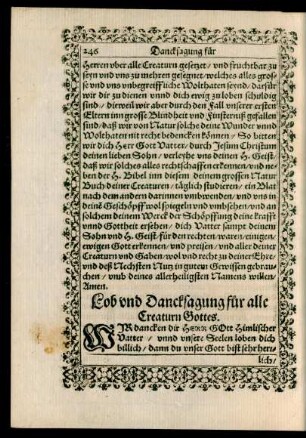 246 Dancksagung für
Herren vber alle Creaturn gesetzet / vnd fruchtbar zu
seyn vnd vns zu mehren gesegnet / welches alles gros-
se vnd vns vnbegreiffliche Wolthaten seynd / dafür
wir dir zu dienen vnnd dich ewig zu loben schuldig
sind / dieweil wir aber durch den Fall vnserer ersten
Eltern inn grosse Blindheit vnd Finsternuß gefallen
sind / daß wir von Natur solche deine Wunder vnnd
Wolthaten nit recht bedencken können / So bitten
wir dich Herr Gott Vatter / durch Jesum Christum
deinen lieben Sohn / verleyhe vns deinen H. Geist /
daß wir solches alles rechtschaffen erkennen / vnd ne-
ben der H. Bibel inn diesem deinem grossen Natur
Buch deiner Creaturen / täglich studieren / ein Blat
nach dem andern darinnen vmbwenden / vnd vns in
deine Geschöpff wol spiegeln vnd vmbsehen / vnd an
solchem deinem Werck der Schöpffung deine krafft
vnnd Gottheit ersehen / dich Vatter sampt deinem
Sohn vnd H. Geist für den rechten / waren / einigen /
ewigen Gott erkennen / vnd preisen / vnd aller deiner
Creaturn vnd Gaben / wol vnd recht zu deiner Ehre /
vnd deß Nechsten Nutz in gutem Gewissen gebrau-
chen / vmb deines allerheiligsten Namens willen /
Amen.
Lob vnd Dancksagung für alle
Creaturn Gottes.
WIR dancken dir HERR GOtt Himlischer
Vatter / vnnd vnsere Seelen loben dich
billich / dann du vnser Gott bist sehr herr-
lich /